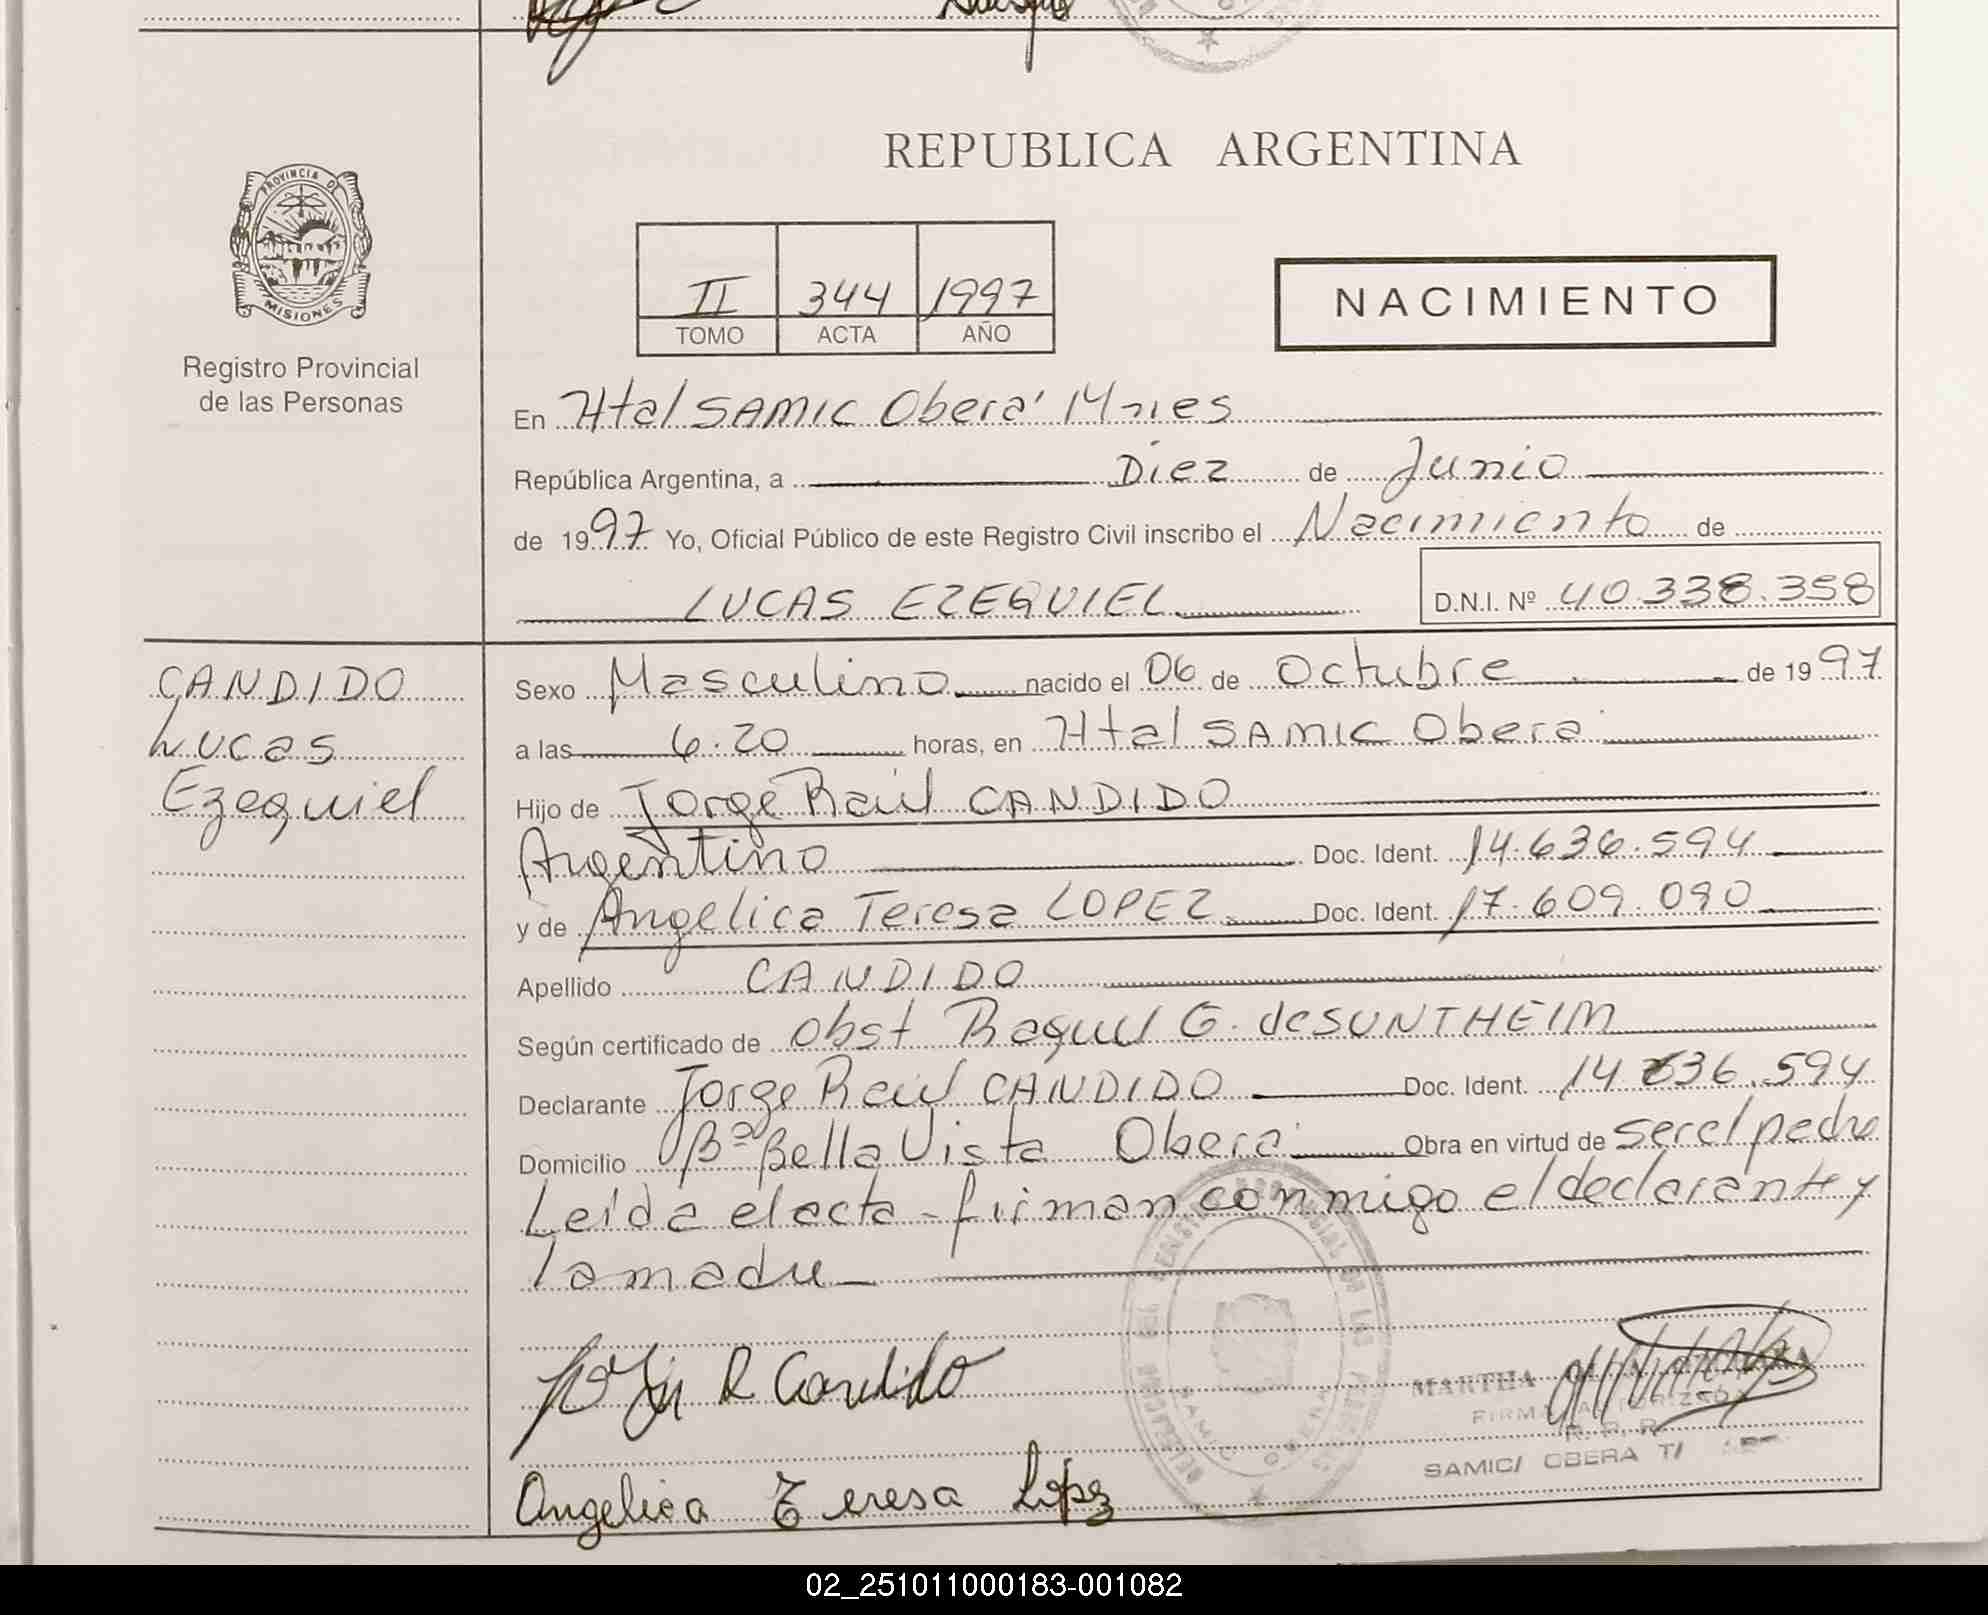 REPUBLICA ARGENTINA
PROVINCIA DE
MISIONES
Registro Provincial
de las Personas
II 344 1997
TOMO ACTA AÑO
NACIMIENTO
En Htal SAMIC Oberá Mnes
República Argentina, a Diez de Junio
de 1997 Yo, Oficial Público de este Registro Civil inscribo el Nacimiento de
LUCAS EZEQUIEL D.N.I. Nº 40.338.358
CANDIDO
Lucas
Ezequiel
Sexo Masculino nacido el 06 de Octubre de 1997
a las 6.20 horas, en Htal SAMIC Oberá
Hijo de Jorge Raúl CANDIDO
Argentino Doc. Ident. 14.636.594
y de Angelica Teresa LOPEZ Doc. Ident. 17.609.090
Apellido CANDIDO
Según certificado de Obst Raquel G. de SUNTHEIM
Declarante Jorge Raúl CANDIDO Doc. Ident. 14 636.594
Domicilio Bº Bella Vista Oberá Obra en virtud de ser el padre
Leída el acta - firman conmigo el declarante y
la madre
R Candido
MARTHA
FIRMA AUTORIZADA
SAMIC/ OBERA T/
Angelica Teresa Lopez
02_251011000183-001082